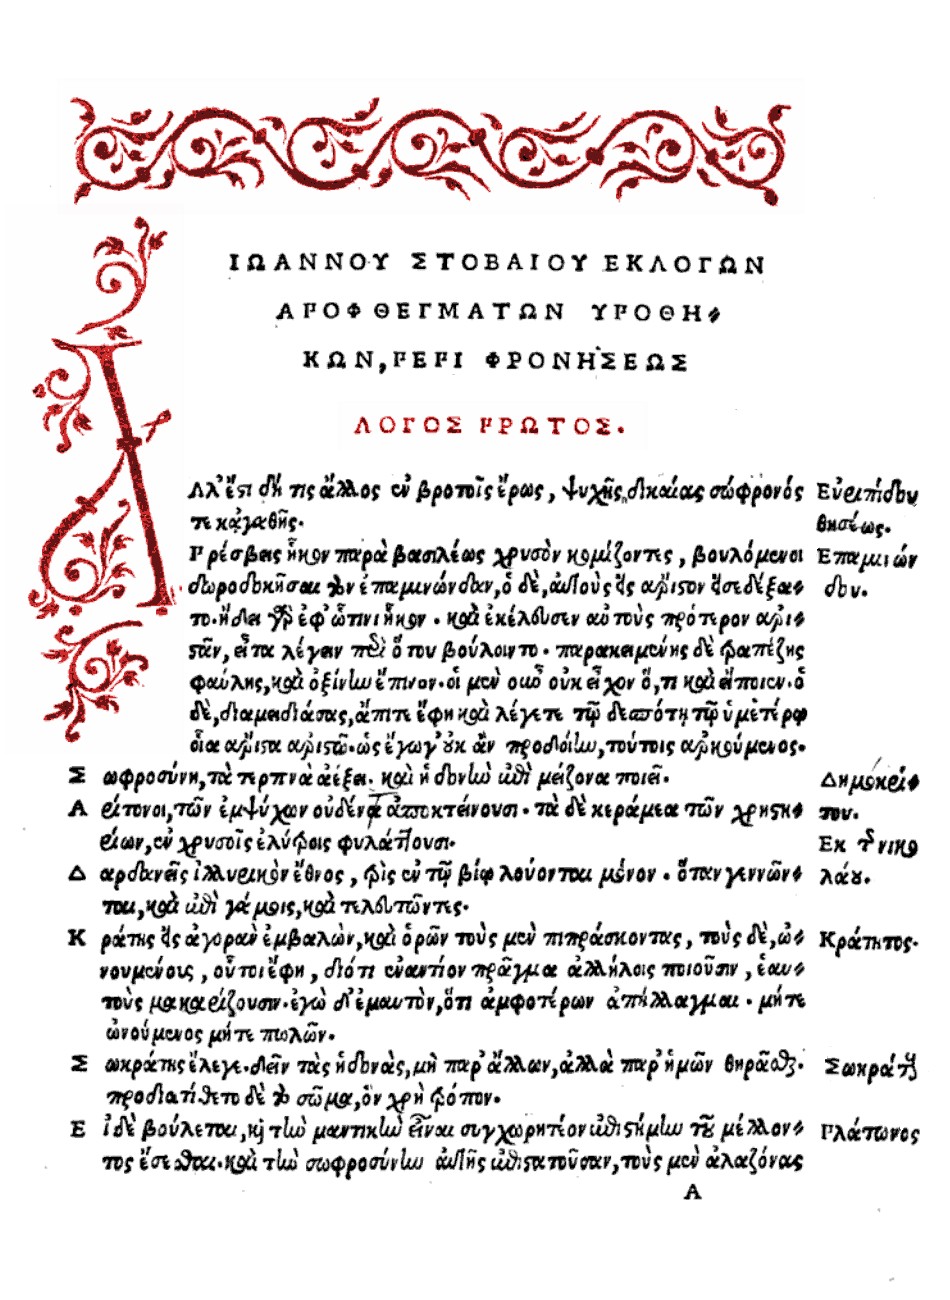 ΙΩΑΝΝΟΥ ΣΤΟΒΑΙΟΥ ΕΚΛΟΓΩΝ
ΑΠΟΦΘΕΓΜΑΤΩΝ ΥΠΟΘΗ-
ΚΩΝ, ΠΕΡΙ ΦΡΟΝΗΣΕΩΣ
ΛΟΓΟΣ ΠΡΩΤΟΣ.
Αλ' ἔστι δή τις ἄλλος ἐν βροτοῖς ἔρως, ψυχῆς δικαίας σώφρονός Εὐριπίδου
τε κἀγαθῆς. θησέως.
Πρέσβεις ἧκον παρὰ βασιλέως χρυσὸν κομίζοντες, βουλόμενοι Επαμινών
δωροδοκῆσαι τὸν ἐπαμινώνδαν, ὁ δὲ, αὐτοὺς εἰς ἄριστον εἰσεδέξα- δου.
το. ᾔδει γὰρ ἐφ' ὥτινι ἧκον. καὶ ἐκέλευσεν αὐτοὺς πρότερον ἀρι-
στᾶν, εἶτα λέγειν περὶ ὅτου βούλοιντο. παρακειμένης δὲ τραπέζης
φαύλης, καὶ ὀξίνην ἔπινον. οἱ μὲν οὖν οὐκ εἶχον ὅ, τι καὶ εἴποιεν. ὁ
δὲ, διαμειδιάσας, ἄπιτε ἔφη καὶ λέγετε τῷ δεσπότῃ τῷ ὑμετέρῳ
οἷα ἄριστα ἀριστῶ. ὡς ἔγωγ' οὐκ ἂν προδοίην, τούτοις ἀρκούμενος.
Σ ωφροσύνη, τὰ τερπνὰ ἀέξει. καὶ ἡδονὴν ἐπὶ μείζονα ποιεῖ. Δημοκρί-
Α είτονοι, τῶν ἐμψύχων οὐδένα ἀποκτείνουσι. τὰ δὲ κεράμεα τῶν χρηστη- του.
είων, ἐν χρυσοῖς ἐλύτροις φυλάττουσι. Εκ τῶν νικο
Δ αρδανεῖς ἰλλυρικὸν ἔθνος, τρὶς ἐν τῷ βίῳ λούονται μόνον. ὅταν γεννῶν- λάου.
ται, καὶ ἐπὶ γάμοις, καὶ τελευτῶντες.
Κ ράτης εἰς ἀγορὰν ἐμβαλὼν, καὶ ὁρῶν τοὺς μὲν πιπράσκοντας, τοὺς δὲ, ὠ- Κράτητος.
νουμένους, οὗτοι ἔφη, διότι ἐναντίον πρᾶγμα ἀλλήλοις ποιοῦσιν, ἑαυ-
τοὺς μακαρίζουσιν. ἐγὼ δ' ἐμαυτὸν, ὅτι ἀμφοτέρων ἀπήλλαγμαι. μήτε
ὠνούμενος μήτε πωλῶν.
Σ ωκράτης ἔλεγε. δεῖν τὰς ἡδονὰς, μὴ παρ' ἄλλων, ἀλλὰ παρ' ἡμῶν θηρᾶσθαι. Σωκράτους
προδιατίθετο δὲ τὸ σῶμα, ὃν χρὴ τρόπον.
Ε ἰ δὲ βούλεται, καὶ τὴν μαντικὴν εἶναι συγχωρητέον ἐπιστήμην τοῦ μέλλον- Πλάτωνος
τος ἔσεσθαι. καὶ τὴν σωφροσύνην αὐτῆς ἐπιστατοῦσαν, τοὺς μὲν ἀλαζόνας
Α